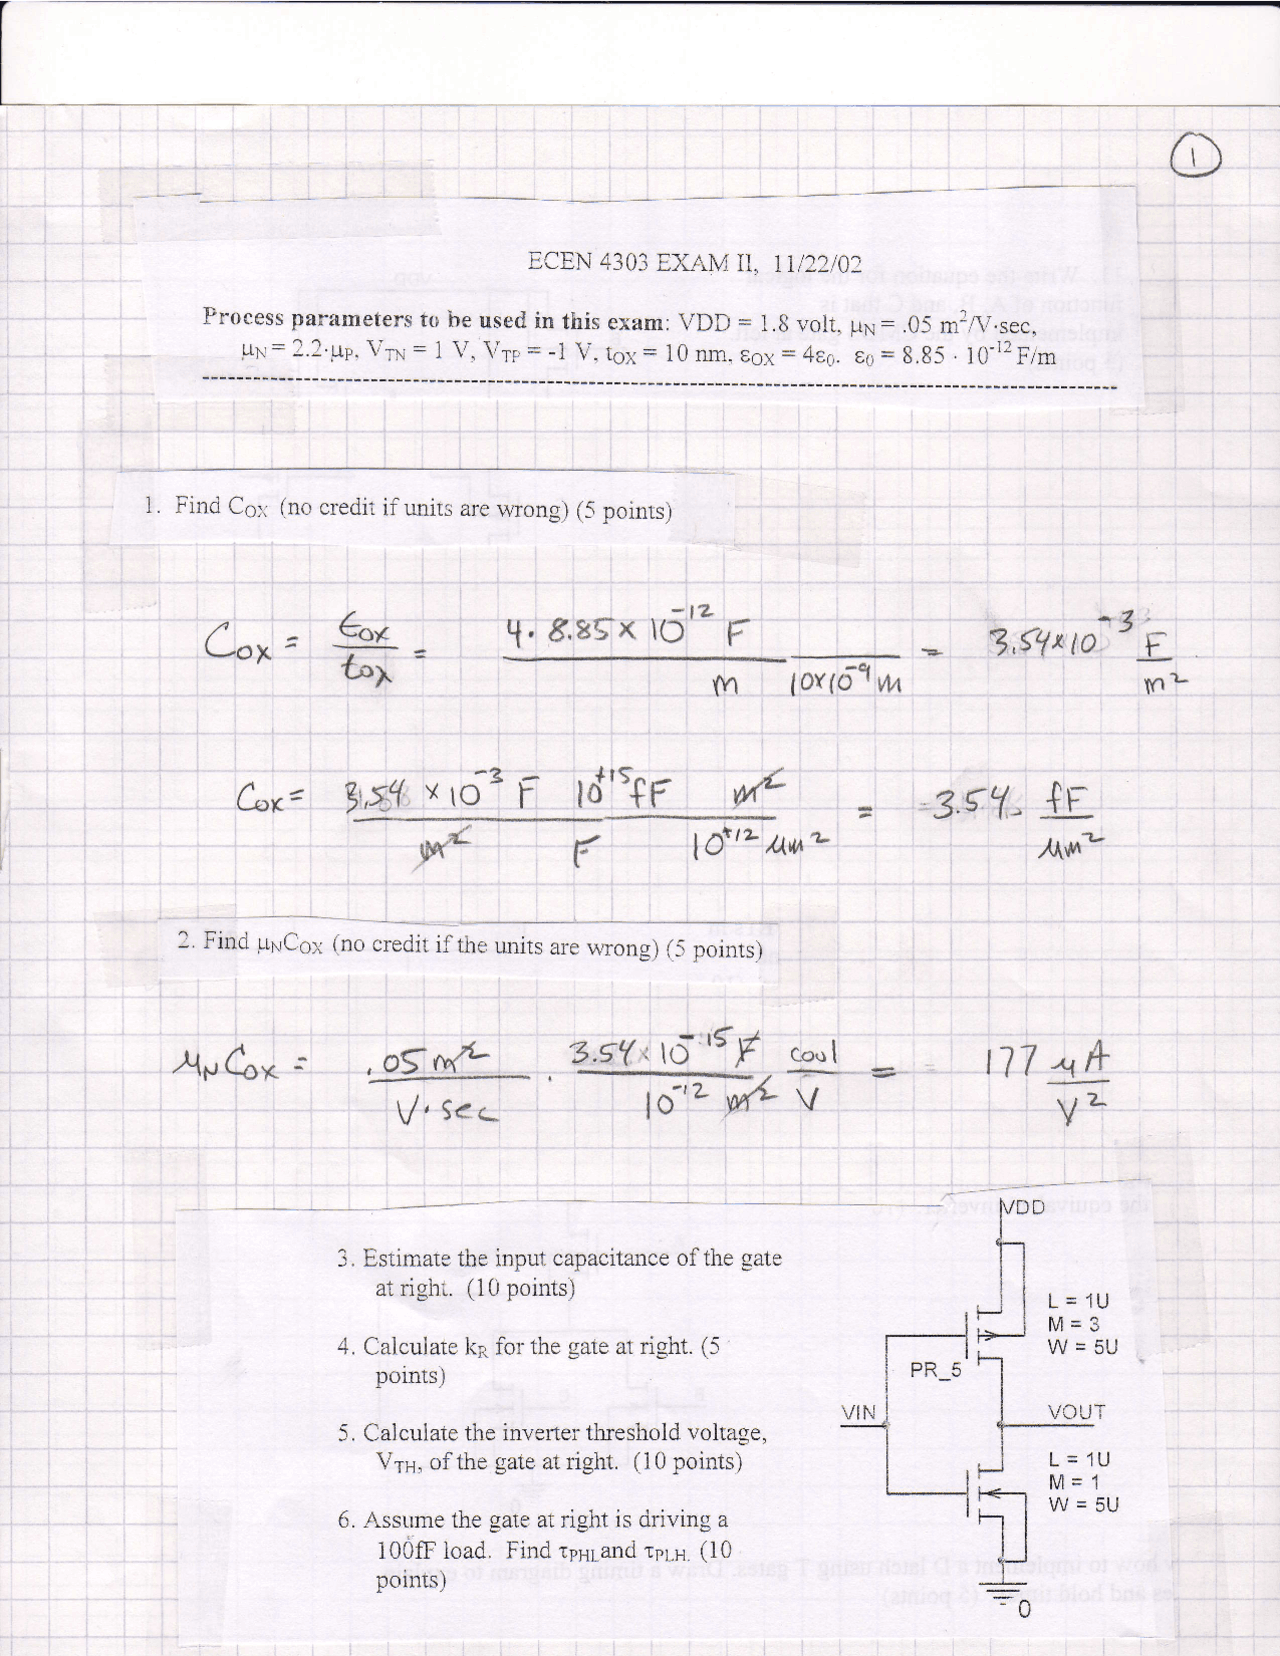 1
ECEN 4303 EXAM II, 11/22/02
Process parameters to be used in this exam: VDD = 1.8 volt, μN = .05 m²/V·sec,
μN = 2.2·μP, VTN = 1 V, VTP = -1 V, tOX = 10 nm, εOX = 4ε0. ε0 = 8.85 · 10⁻¹² F/m
1. Find COX (no credit if units are wrong) (5 points)
Cox = εox / tox = 4 · 8.85 x 10⁻¹² F / m 10x10⁻⁹ m = 3.54x10⁻³ F / m²
Cox = 3.54 x 10⁻³ F / m² 10⁺¹⁵ fF / F m² / 10⁺¹² μm² = 3.54 fF / μm²
2. Find μNCOX (no credit if the units are wrong) (5 points)
μN Cox = .05 m² / V·sec · 3.54 x 10⁻¹⁵ F / 10⁻¹² m² coul / V = 177 μA / V²
3. Estimate the input capacitance of the gate
at right. (10 points)
4. Calculate kR for the gate at right. (5
points)
5. Calculate the inverter threshold voltage,
VTH, of the gate at right. (10 points)
6. Assume the gate at right is driving a
100fF load. Find τPHL and τPLH. (10
points)
VDD
L = 1U
M = 3
W = 5U
PR_5
VIN
VOUT
L = 1U
M = 1
W = 5U
0